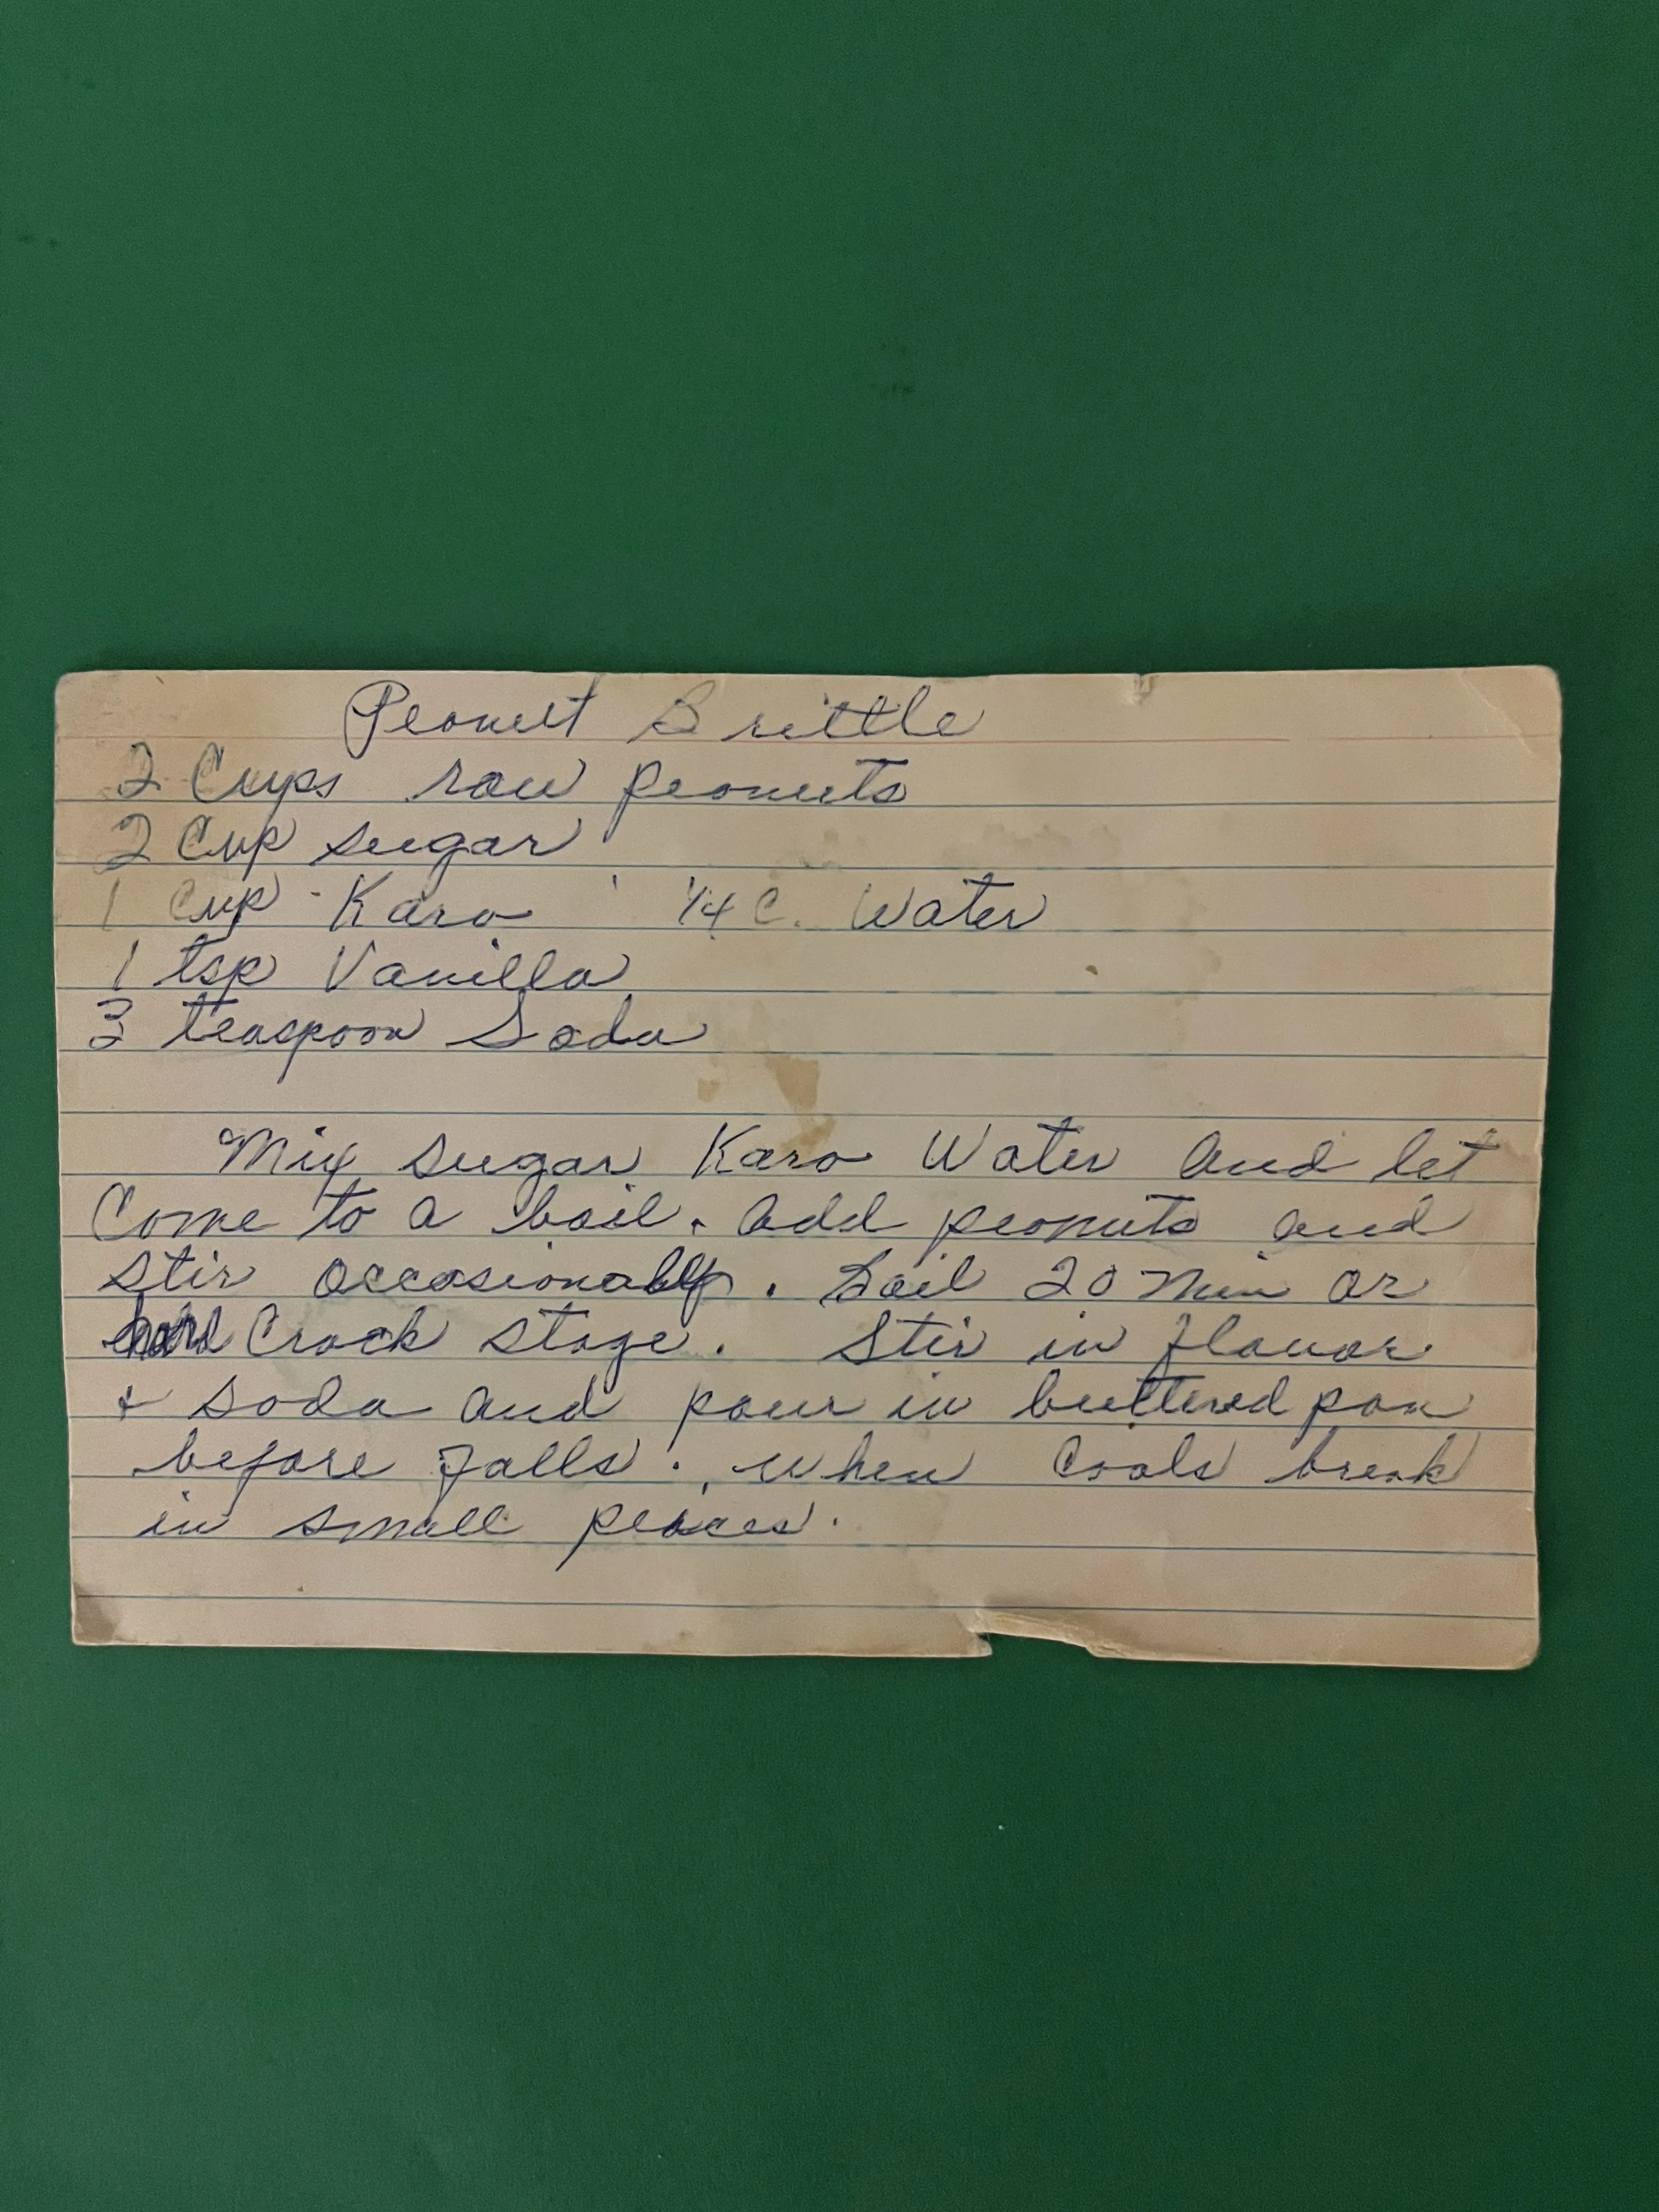 Peanut Brittle
2 Cups raw peanuts
2 Cup sugar
1 Cup Karo 1/4 C. Water
1 tsp Vanilla
3 teaspoon Soda
Mix sugar Karo Water and let
Come to a boil. add peanuts and
stir occasionally. Boil 20 min or
hard Crack stage. Stir in flavor
& soda and pour in buttered pan
before falls. when cools break
in small peaces.